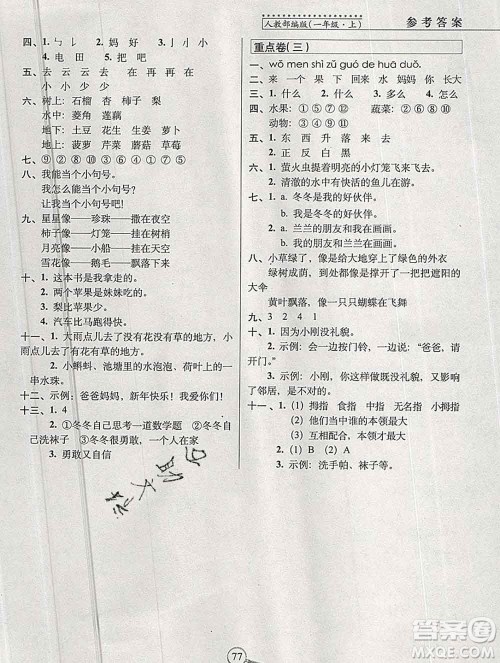 人教部编版(一年级·上) 参考答案
四、1. ㄅ 丿 ㄴ 2. 妈 妈 好
4. 电 田 电
五、去 云 去 云 在 再 在 再
小 少 小 少 少
六、树上:石榴 杏 柿子 梨
水中:菱角 莲藕
地下:土豆 花生 生姜 萝卜
地上:菠萝 芹菜 蘑菇 草莓
七、⑨②⑧⑩③⑦⑥④①⑤
八、我能当个小句号。
我怎么能当个小句号?
让我当个小句号吧!
九、星星像——珍珠——撒在夜空
柿子像——灯笼——挂在树梢
月亮像——小船——挂在天空
雪花像——鹅毛——飘落下来
十、1. 这本书是我拿走的。
2. 两个苹果是妹妹吃的。
3. 梨比苹果大。
4. 汽车比马跑得快。
十一、1. 大雨点儿去了有花有草的地方,小
雨点儿去了没有花没有草的地方。
2. 小蝌蚪、池塘里的水泡泡、荷叶上的一
串水珠。
十二、示例:爸爸妈妈,新年快乐!我爱你们!
十三、1. 4
2. 冬冬自己思考一道数学题 冬冬自
己洗袜子 冬冬很勇敢,一个人在家
3. 勇敢又自信
重点卷(三)
一、wǒ men shì zǔ guó de huā duǒ.
二、来 一 个 果 下 回 来 水 妈 妈 你 长 大
三、1. 什么 2. 什么 3. 什么
四、水果:①④⑤⑫ 蔬菜:②⑥⑦⑩
动物:③⑧⑨⑪
五、1. 东 西 升 落 来 去
2. 正 反 白 黑
六、1. 萤火虫提着明亮的小灯笼飞来飞去。
2. 清澈的水中有快活的鱼儿在游。
七、1. a. 冬冬是我的好伙伴。
b. 我是冬冬的好伙伴。
2. a. 兰兰的朋友和我在看大戏。
b. 我的朋友和兰兰在看大戏。
八、小草绿了,像是给大地穿上了绿色的外衣
绿树成荫,到处都像是撑开了一把把遮阳的
大伞
黄叶飘落,像一只只蝴蝶在飞舞
九、2 3 4 1
十、1. 因为小刚没礼貌。
2. 示例:会一边按门铃,一边说:“爸爸,请
开门。”
3. 示例:小刚,你这样既没礼貌,又影响
了邻居,是不对的。
十一、1. (1) 拇指 食指 中指 小拇指
(2) 相亲相爱的一家人
(3) 互相配合,本领才最大
2. (1) B (2) A
3. 示例:洗手帕、袜子等。
77
答案圈
MXQE.COM